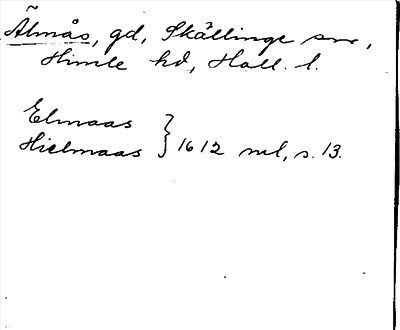 Älmås, gd, Skällinge sn,
Himle hd, Hall. l.
Elmaas
Hielmaas } 1612 ml, s. 13.